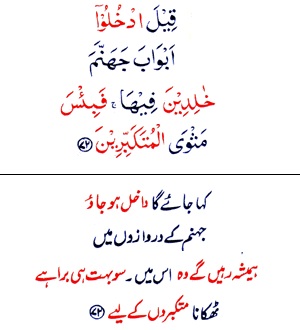 قِيْلَ ادْخُلُوْٓا
اَبْوَابَ جَهَنَّمَ
خٰلِدِيْنَ فِيْهَا ۚ فَبِئْسَ
مَثْوَى الْمُتَكَبِّرِيْنَ ﴿۷۲﴾
کہا جائے گا داخل ہو جاؤ
جہنم کے دروازوں میں
ہمیشہ رہیں گے وہ اس میں۔ سو بہت ہی برا ہے
ٹھکانا متکبروں کے لیے ﴿۷۲﴾